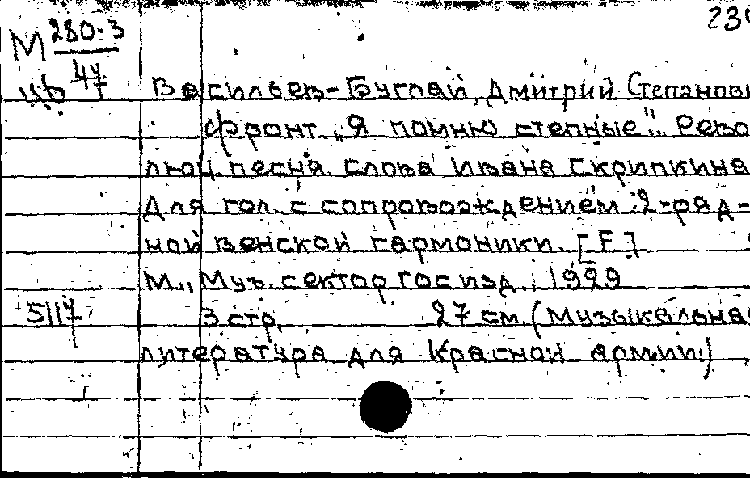 М 280-3
44
239
Васильев-Буглай, Дмитрий Степанови
фронт. "Я помню степные". Рево-
люц. песня. Слова Ивана Скрипкина
Для гол. с сопровождением 2-ряд-
ной венской гармоники. [F.]
М., Муз. сектор Госизд., 1929
5117 3 стр. 27 см. (Музыкальная
литература для Красной армии)